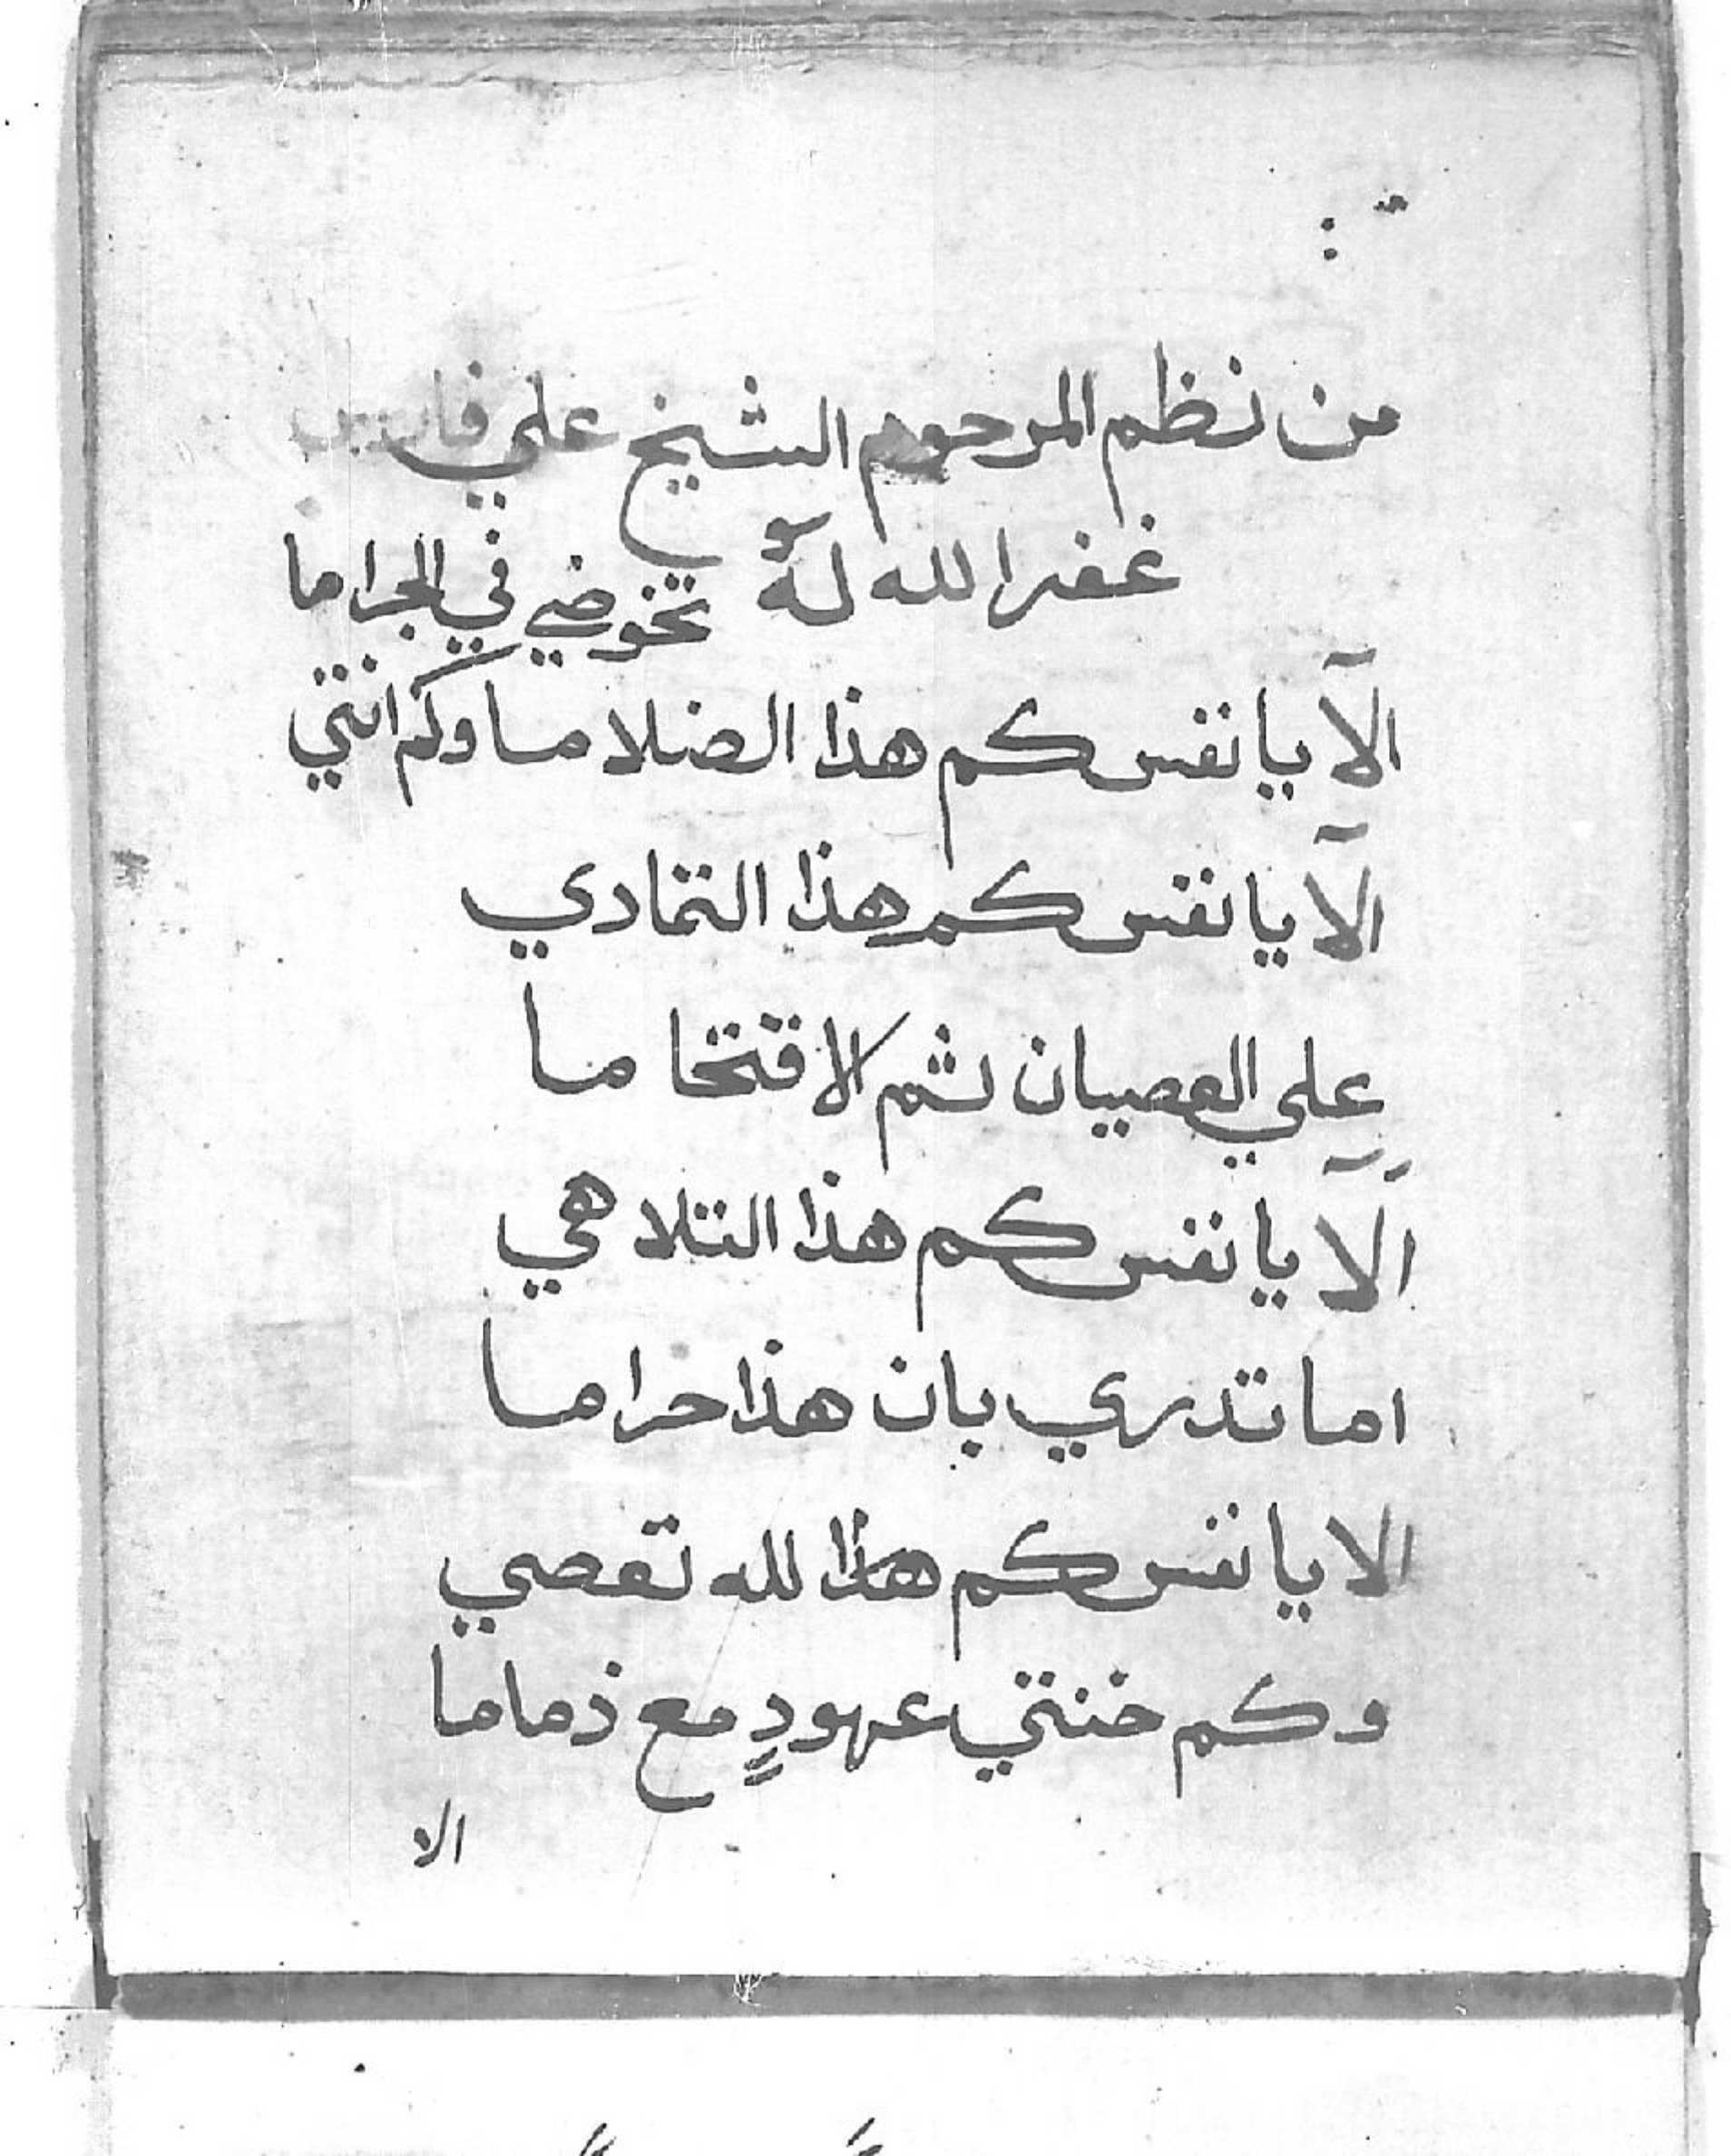 من نظم المرحوم الشيخ علي
غفر الله له
تخوضي في الجراما
الآيا نفس كم هذا الضلاما وكم انتي
الآيا نفس كم هذا التمادي
علي العصيان ثم الاقتحاما
الآيا نفس كم هذا التلاهي
اما تدري بان هذا حراما
الايا نفس كم هاذا لله تعصي
وكم خنتي عهودٍ مع ذماما
الا